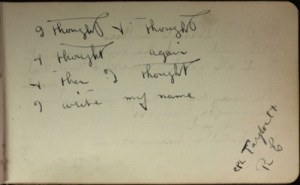 I thought & thought
& thought again
& then I thought
I write my name
R E